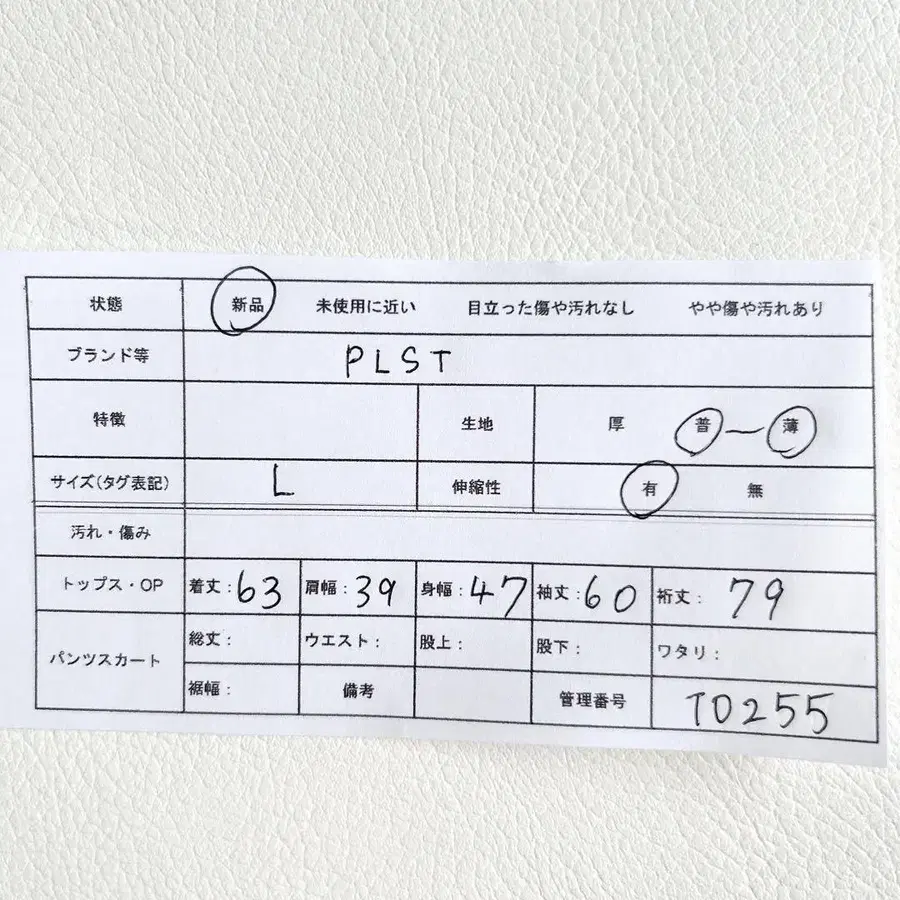 状態 新品 未使用に近い 目立った傷や汚れなし やや傷や汚れあり
ブランド等 PLST
特徴 生地 厚 普 — 薄
サイズ(タグ表記) L 伸縮性 有 無
汚れ・傷み
トップス・OP 着丈:63 肩幅:39 身幅:47 袖丈:60 裄丈:79
パンツスカート 総丈: ウエスト: 股上: 股下: ワタリ:
裾幅: 備考 管理番号 T0255